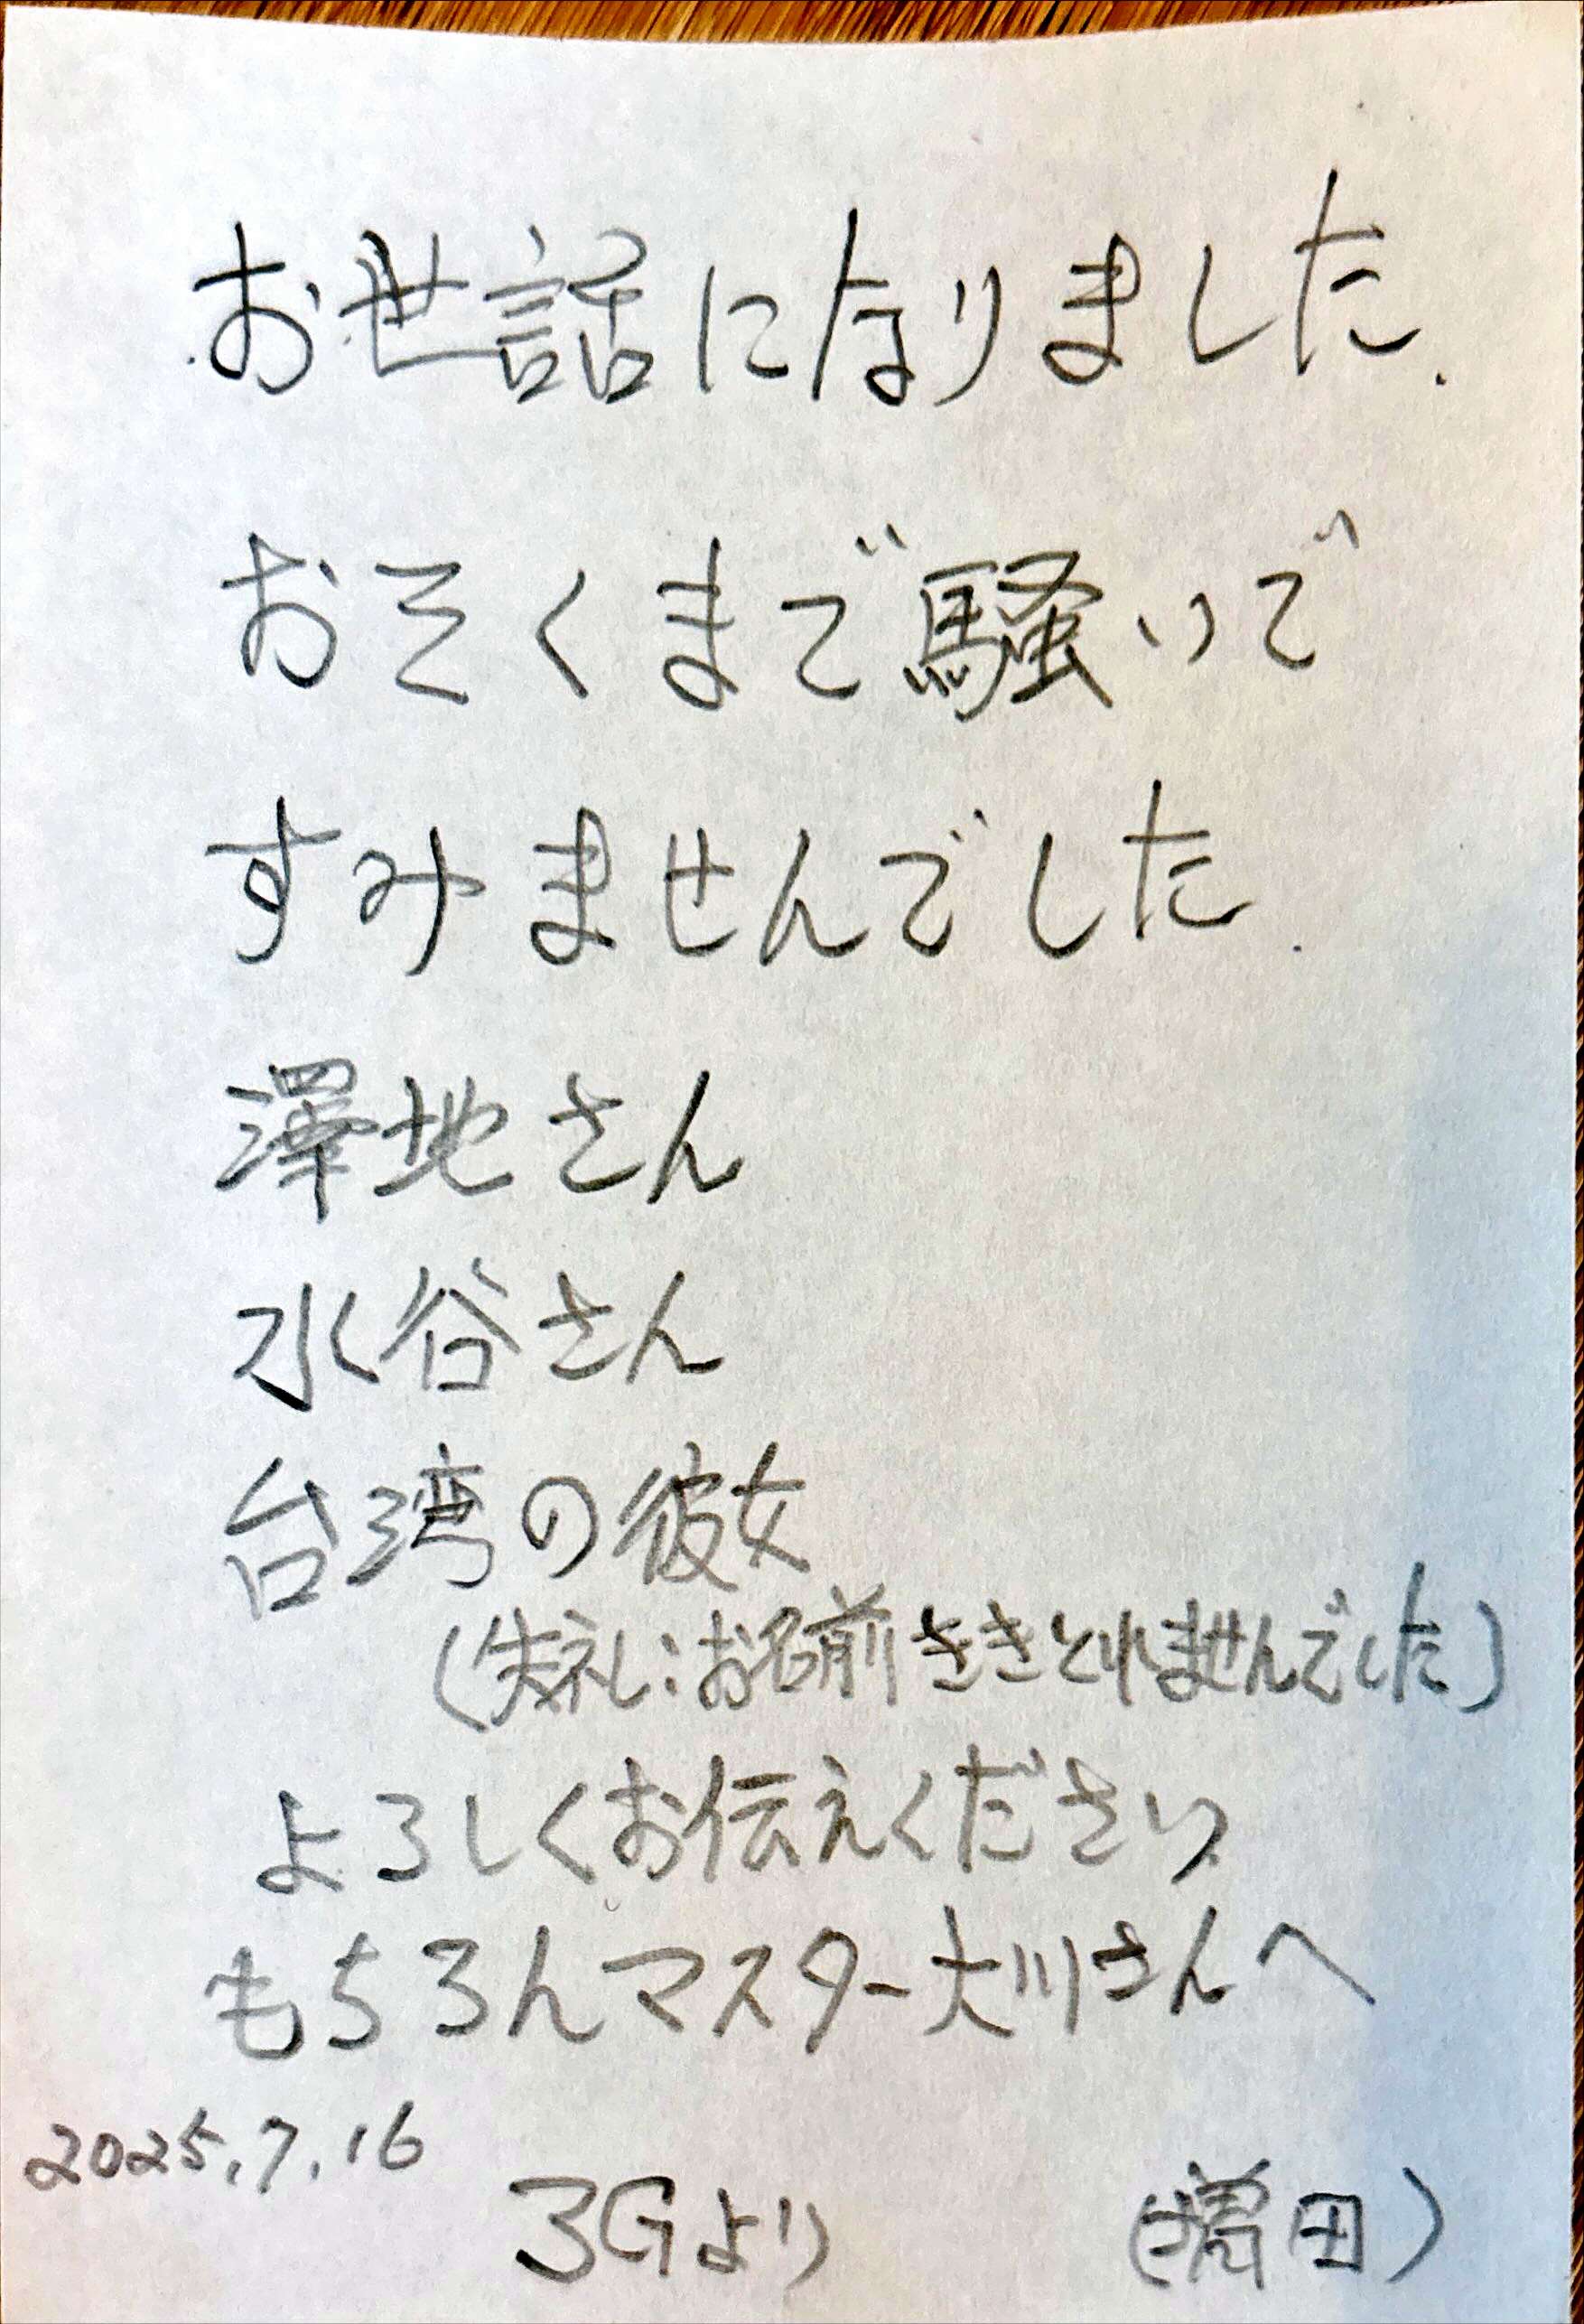 お世話になりました.
おそくまで騒いで
すみませんでした.
澤地さん
水谷さん
台湾の彼女
(失礼:お名前ききとれませんでした)
よろしくお伝えください
もちろんマスター大川さんへ
2025.7.16
3Gより (増田)